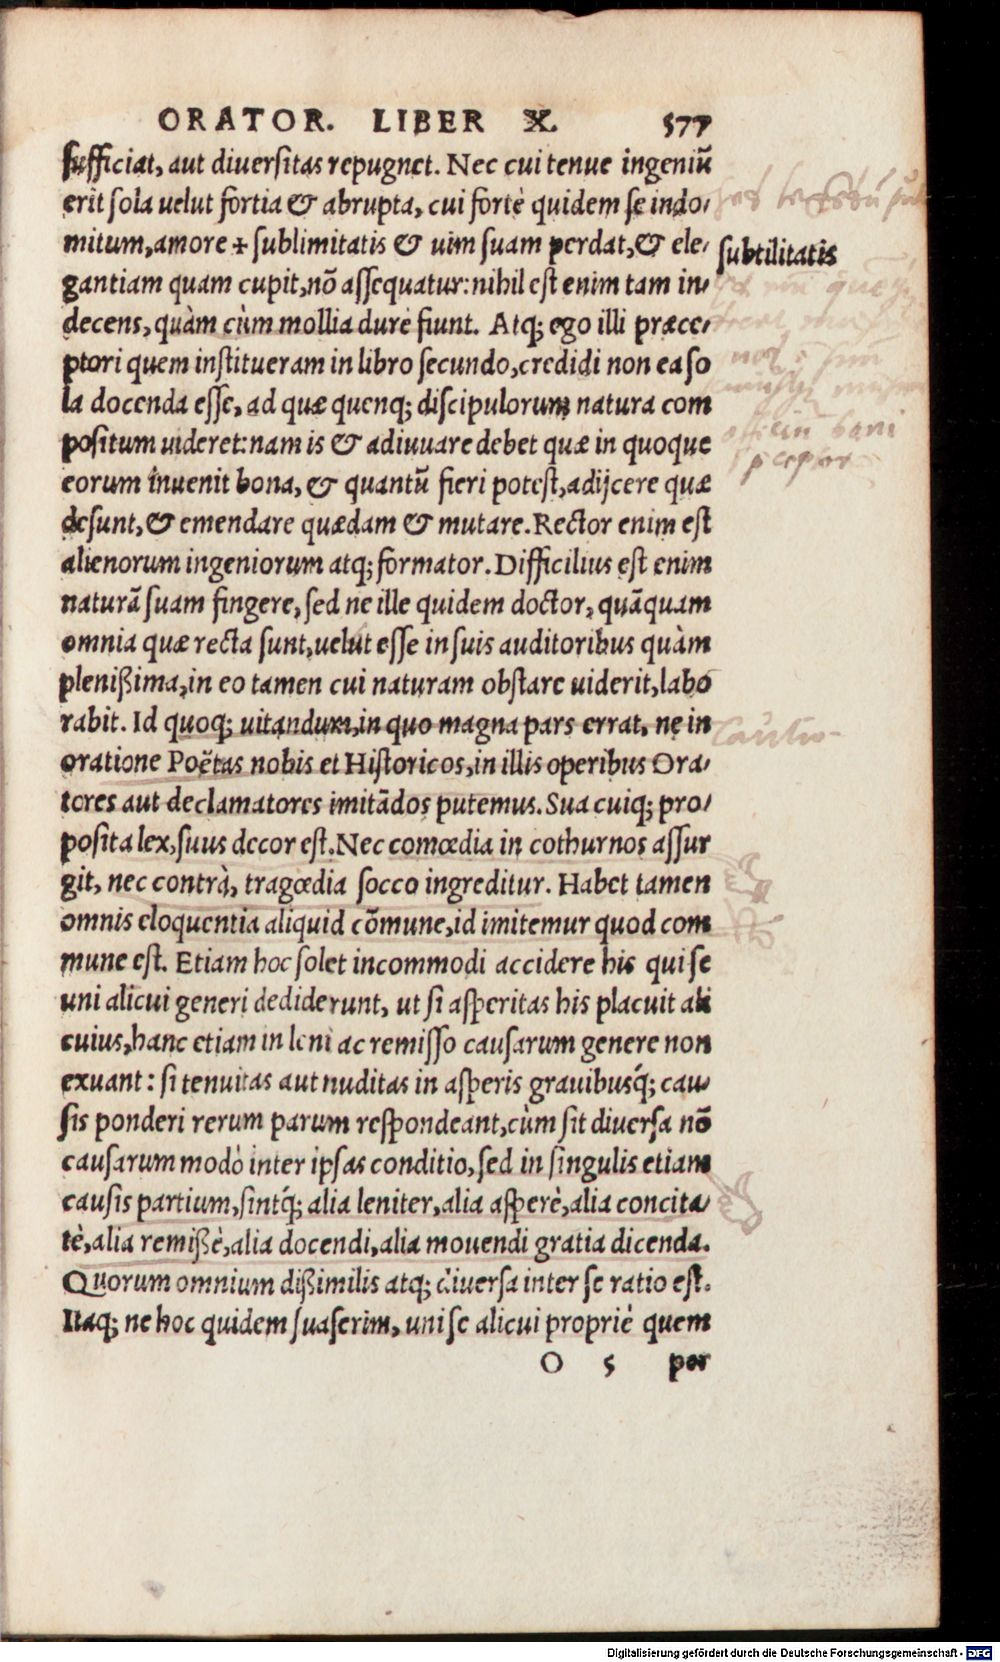 ORATOR. LIBER X. 577
sufficiat, aut diuersitas repugnet. Nec cui tenue ingeniũ
erit sola uelut fortia & abrupta, cui fortè quidem se indo/
mitum, amore + sublimitatis & uim suam perdat, & ele/
subtilitatis
gantiam quam cupit, nõ assequatur: nihil est enim tam in/
decens, quàm cùm mollia durè fiunt. Atq; ego illi præce/
ptori quem institueram in libro secundo, credidi non ea so
la docenda esse, ad quæ quenq; discipulorum natura com
positum uideret: nam is & adiuuare debet quæ in quoque
eorum inuenit bona, & quantũ fieri potest, adijcere quæ
desunt, & emendare quædam & mutare. Rector enim est
alienorum ingeniorum atq; formator. Difficilius est enim
naturã suam fingere, sed ne ille quidem doctor, quãquam
omnia quæ recta sunt, uelut esse in suis auditoribus quàm
plenißima, in eo tamen cui naturam obstare uiderit, labo
rabit. Id quoq; uitandum, in quo magna pars errat, ne in
oratione Poëtas nobis et Historicos, in illis operibus Ora/
tores aut declamatores imitãdos putemus. Sua cuiq; pro/
posita lex, suus decor est. Nec comœdia in cothurnos assur
git, nec contrà, tragœdia socco ingreditur. Habet tamen
omnis eloquentia aliquid cõmune, id imitemur quod com
mune est. Etiam hoc solet incommodi accidere his qui se
uni alicui generi dediderunt, ut si asperitas his placuit ali
cuius, hanc etiam in leni ac remisso causarum genere non
exuant: si tenuitas aut nuditas in asperis grauibusq́; cau/
sis ponderi rerum parum respondeant, cùm sit diuersa nõ
causarum modò inter ipsas conditio, sed in singulis etiam
causis partium, sintq́; alia leniter, alia asperè, alia concita/
tè, alia remißè, alia docendi, alia mouendi gratia dicenda.
Quorum omnium dißimilis atq; diuersa inter se ratio est.
Itaq; ne hoc quidem suaserim, uni se alicui propriè quem
O 5 per
Digitalisierung gefördert durch die Deutsche Forschungsgemeinschaft - DFG